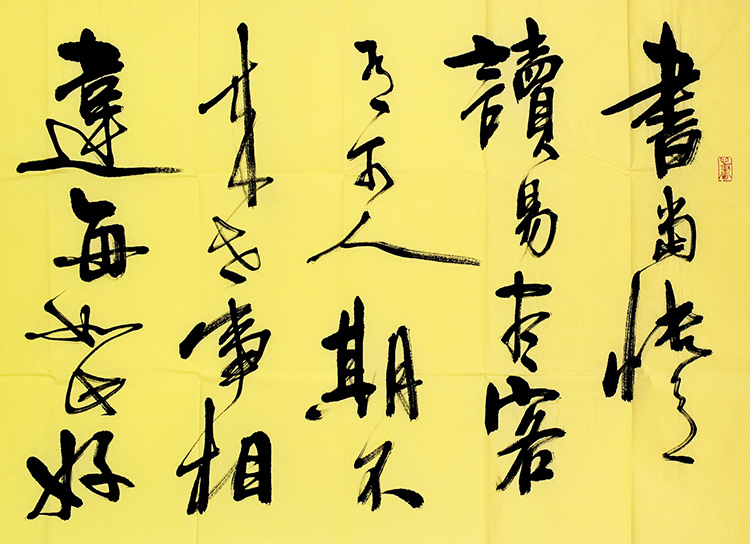 書當快意
讀易盡客
有可人期不
來世事相
違每如此好